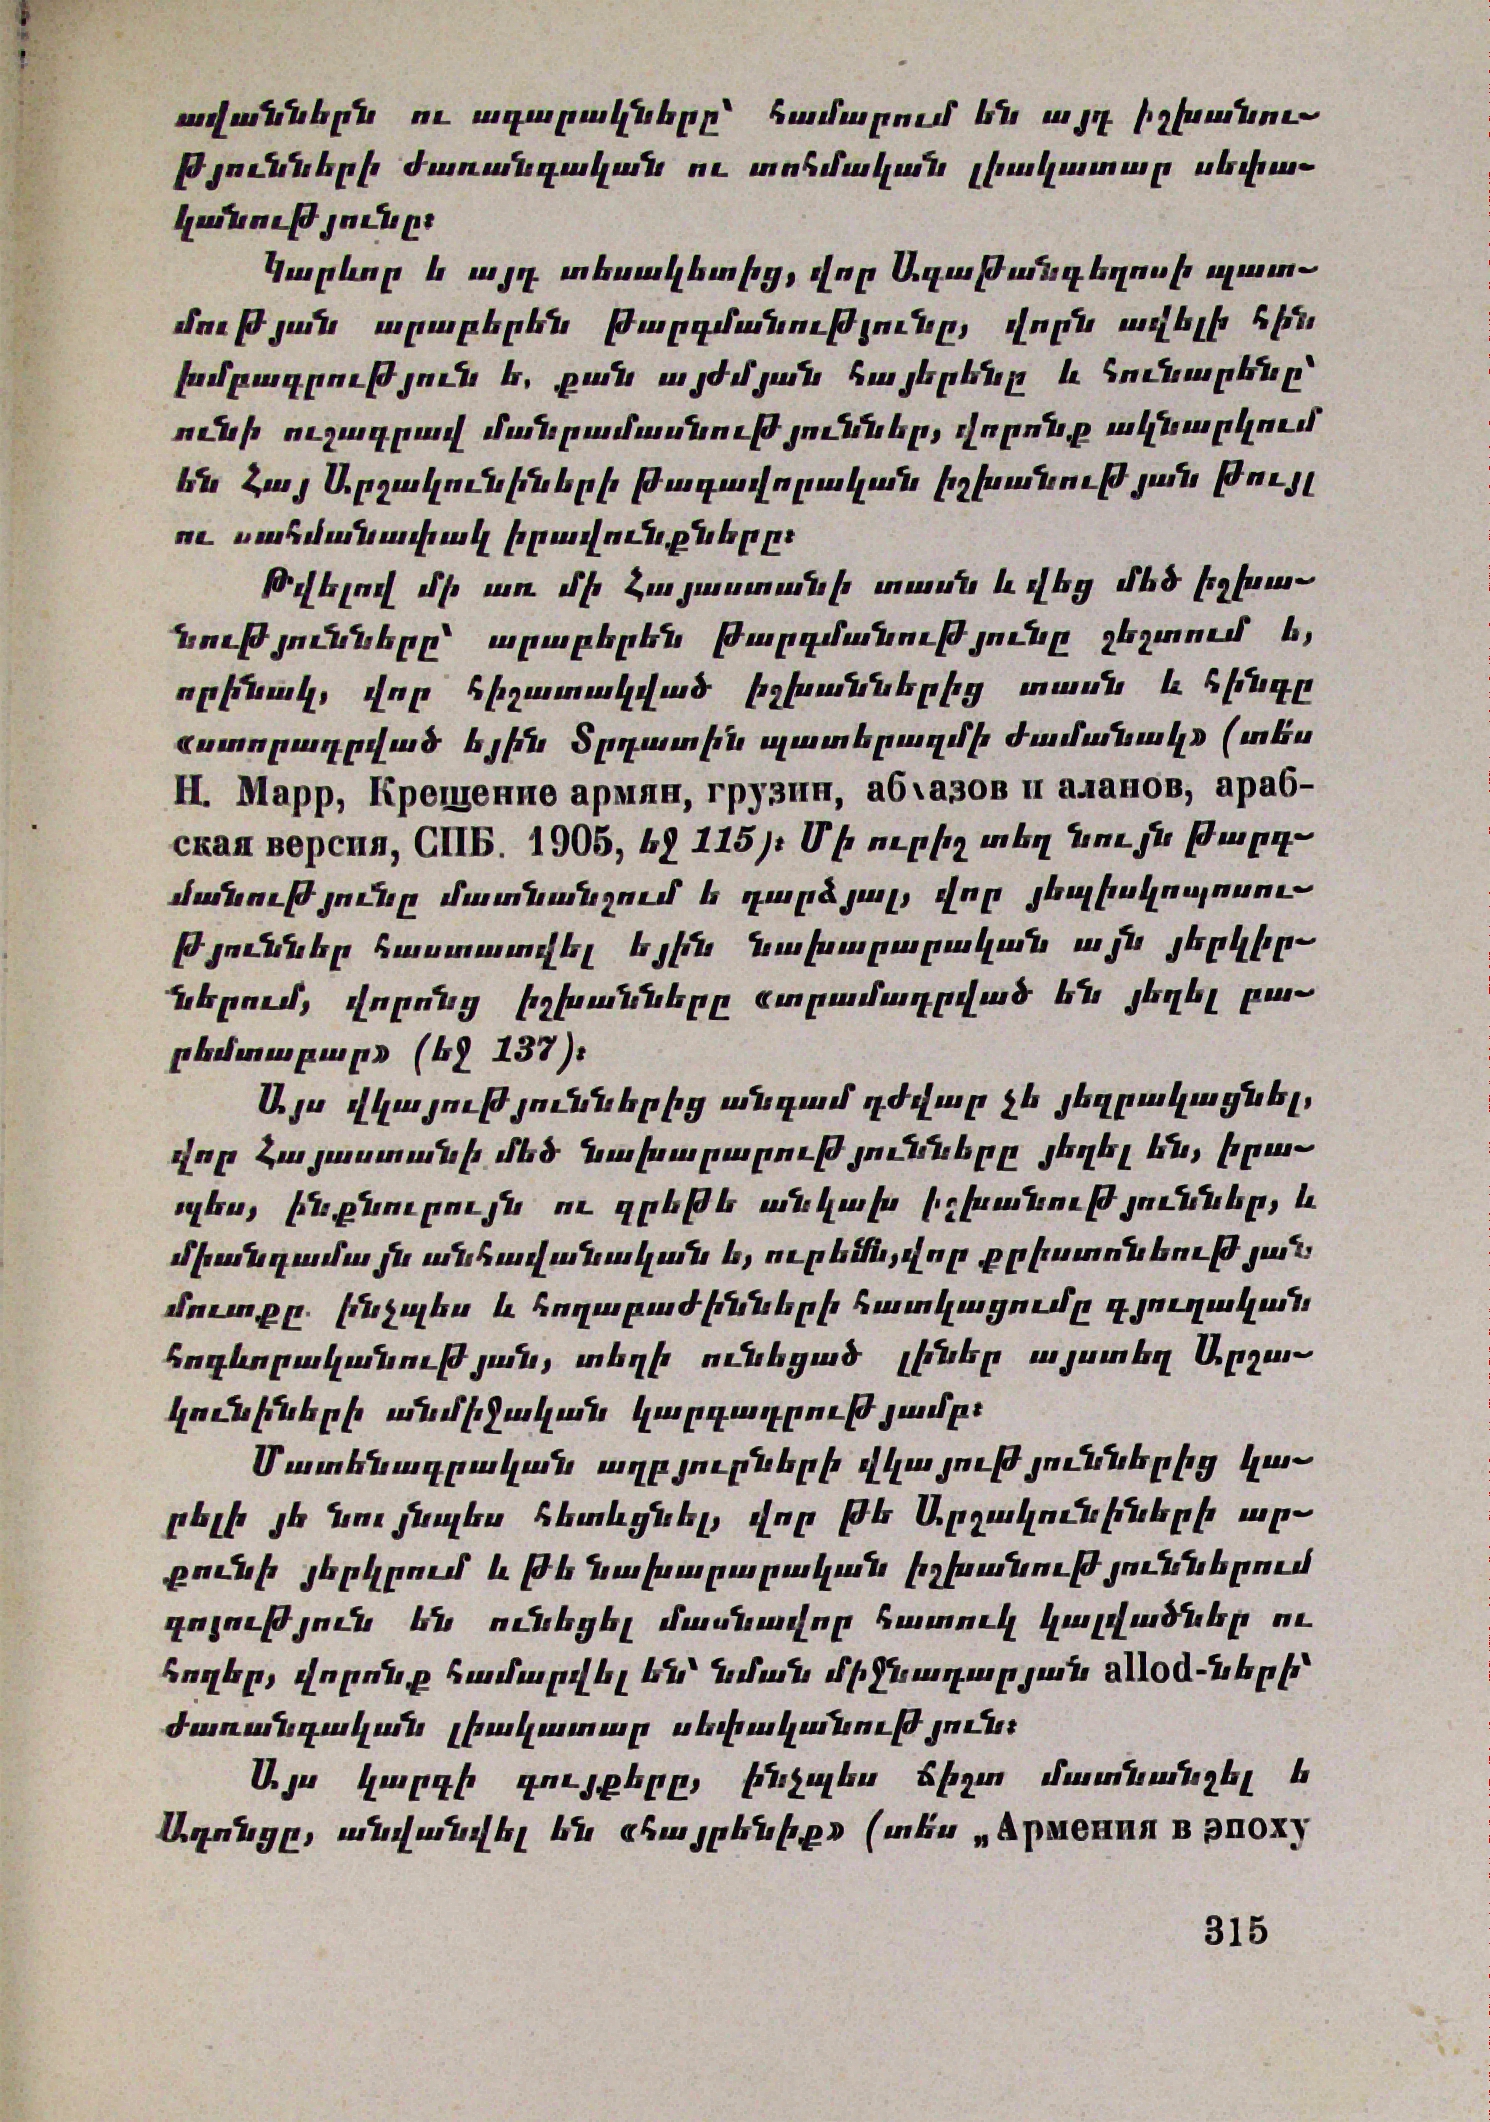 ավաններն ու ագարակները՝ համարում են այդ իշխանու-
թյունների ժառանգական ու տոհմական լիակատար սեփա-
կանությունը։
Կարևոր ե այդ տեսակետից, վոր Ագաթանգեղոսի պատ-
մության արաբերեն թարգմանությունը, վորն ավելի հին
խմբագրություն ե, քան այժմյան հայերենը և հունարենը՝
ունի ուշագրավ մանրամասնություններ, վորոնք ակնարկում
են Հայ Արշակունիների թագավորական իշխանության թույլ
ու սահմանափակ իրավունքները։
Թվելով մի առ մի Հայաստանի տասն և վեց մեծ իշխա-
նությունները՝ արաբերեն թարգմանությունը շեշտում ե,
որինակ, վոր հիշատակված իշխաններից տասն և հինգը
«ստորադրված եյին Տրդատին պատերազմի ժամանակ» (տե՛ս
Н. Марр, Крещение армян, грузин, абхазов и аланов, араб-
ская версия, СПБ. 1905, եջ 115)։ Մի ուրիշ տեղ նույն թարգ-
մանությունը մատնանշում ե դարձյալ, վոր յեպիսկոպոսու-
թյուններ հաստատվել եյին նախարարական այն յերկիր-
ներում, վորոնց իշխանները «տրամադրված են յեղել բա-
րեմտաբար» (եջ 137)։
Այս վկայություններից անգամ դժվար չե յեզրակացնել,
վոր Հայաստանի մեծ նախարարությունները յեղել են, իրա-
պես, ինքնուրույն ու գրեթե անկախ իշխանություններ, և
միանգամայն անհավանական ե, ուրեմն, վոր քրիստոնեության
մուտքը ինչպես և հողաբաժինների հատկացումը գյուղական
հոգևորականության, տեղի ունեցած լիներ այստեղ Արշա-
կունիների անմիջական կարգադրությամբ։
Մատենագրական աղբյուրների վկայություններից կա-
րելի յե նույնպես հետևցնել, վոր թե Արշակունիների ար-
քունի յերկրում և թե նախարարական իշխանություններում
գոյություն են ունեցել մասնավոր հատուկ կալվածներ ու
հողեր, վորոնք համարվել են՝ նման միջնադարյան allod-ների՝
ժառանգական լիակատար սեփականություն։
Այս կարգի գույքերը, ինչպես ճիշտ մատնանշել ե
Ադոնցը, անվանվել են «հայրենիք» (տե՛ս „Армения в эпоху
315